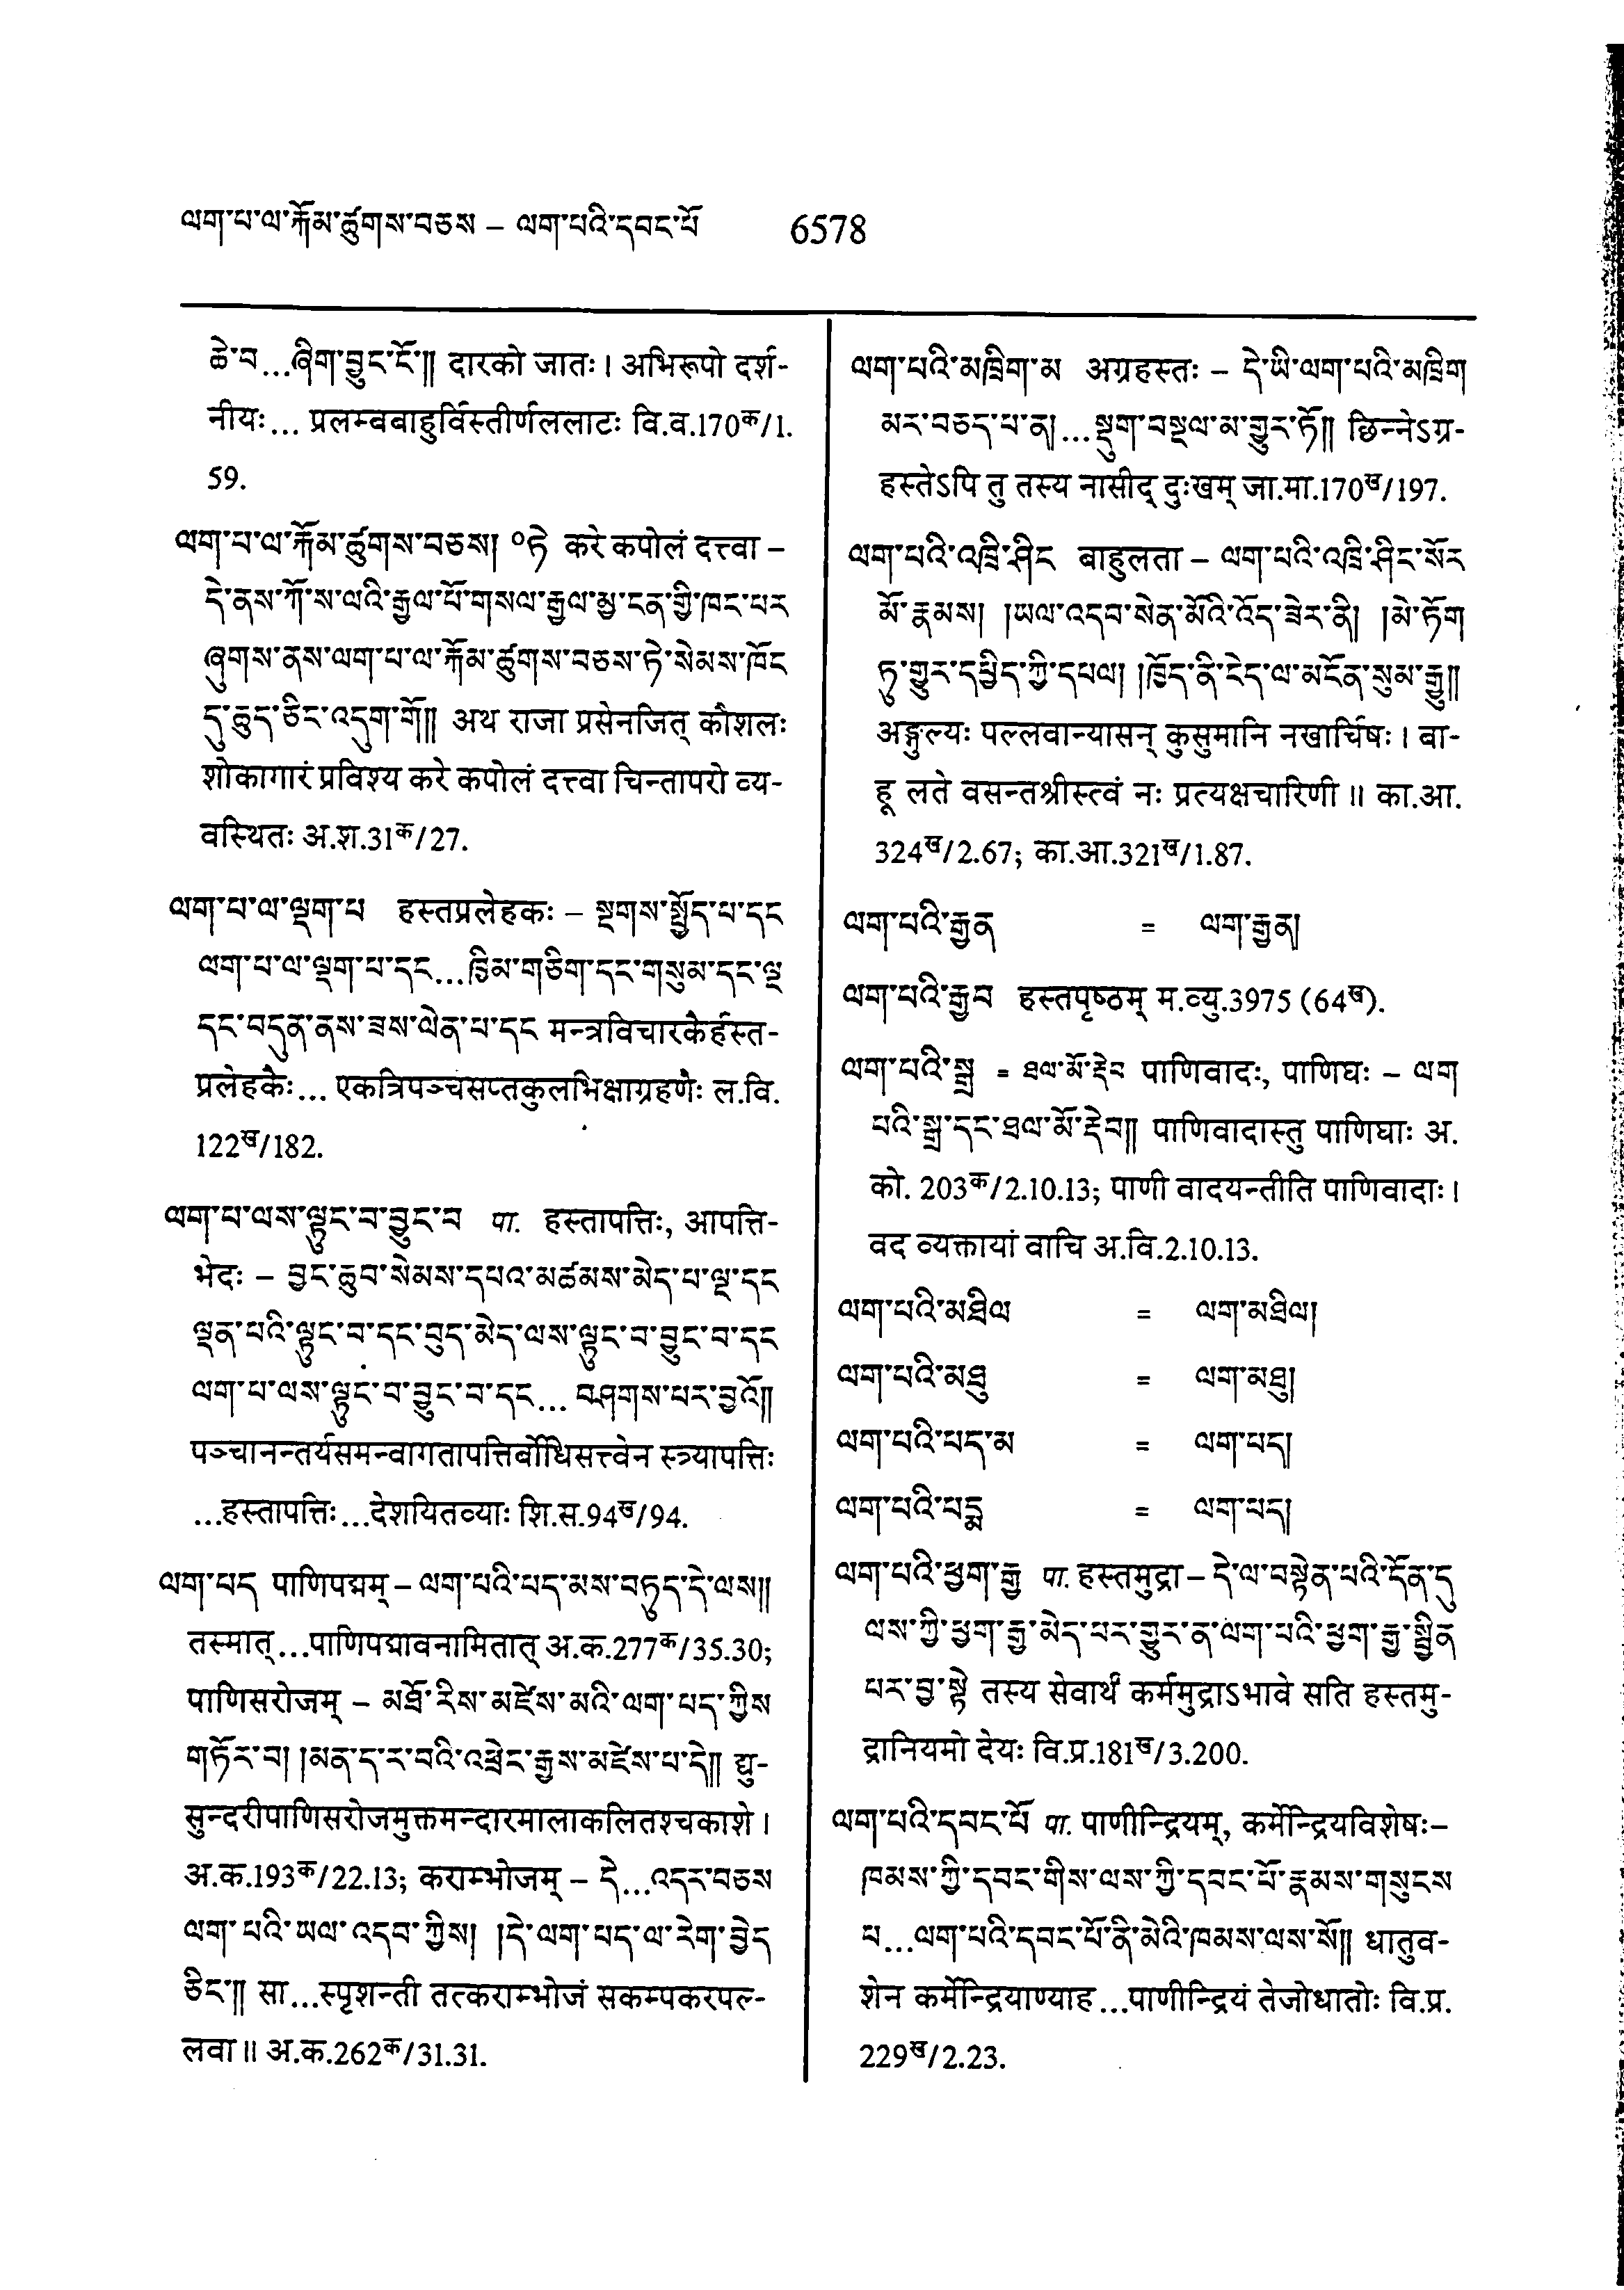 ལག་པ་ལ་རྐོམ་ཚུགས་བཅས – ལག་པའི་དབང་པོ 6578
ཆེ་བ...ཞིག་བྱུང་ངོ་།། दारको जातः। अभिरूपो दर्श-
नीयः... प्रलम्बबाहुर्विस्तीर्णललाटः वि.व.170क/1.
59.
ལག་པ་ལ་རྐོམ་ཚུགས་བཅས། ०ཏེ करे कपोलं दत्त्वा –
དེ་ནས་ཀོ་ས་ལའི་རྒྱལ་པོ་གསལ་རྒྱལ་མྱ་ངན་གྱི་ཁང་པར
ཞུགས་ནས་ལག་པ་ལ་རྐོམ་ཚུགས་བཅས་ཏེ་སེམས་ཁོང
དུ་ཆུད་ཅིང་འདུག་གོ།། अथ राजा प्रसेनजित् कौशलः
शोकागारं प्रविश्य करे कपोलं दत्त्वा चिन्तापरो व्य-
वस्थितः अ.श.31क/27.
ལག་པ་ལ་ལྡག་པ हस्तप्रलेहकः – སྔགས་སྤྱོད་པ་དང
ལག་པ་ལ་ལྡག་པ་དང...ཁྱིམ་གཅིག་དང་གསུམ་དང་ལྔ
དང་བདུན་ནས་ཟས་ལེན་པ་དང मन्त्रविचारकैर्हस्त-
प्रलेहकैः... एकत्रिपञ्चसप्तकुलभिक्षाग्रहणैः ल.वि.
122ख/182.
ལག་པ་ལས་ལྟུང་བ་བྱུང་བ पा. हस्तापत्तिः, आपत्ति-
भेदः – བྱང་ཆུབ་སེམས་དཔའ་མཚམས་མེད་པ་ལྔ་དང
ལྡན་པའི་ལྟུང་བ་དང་བུད་མེད་ལས་ལྟུང་བ་བྱུང་བ་དང
ལག་པ་ལས་ལྟུང་བ་བྱུང་བ་དང... བཤགས་པར་བྱའོ།།
पञ्चानन्तर्यसमन्वागतापत्तिर्बोधिसत्त्वेन स्त्र्यापत्तिः
...हस्तापत्तिः...देशयितव्याः शि.स.94ख/94.
ལག་པད पाणिपद्मम् – ལག་པའི་པད་མས་བཏུད་དེ་ལས།།
तस्मात्...पाणिपद्मावनामितात् अ.क.277क/35.30;
पाणिसरोजम् – མཐོ་རིས་མཛེས་མའི་ལག་པད་ཀྱིས
གཏོར་བ། །མན་ད་ར་བའི་འཕྲེང་རྒྱས་མཛེས་པ་དེ།། द्यु-
सुन्दरीपाणिसरोजमुक्तमन्दारमालाकलितश्चकाशे।
अ.क.193क/22.13; कराम्भोजम् – དེ...འདར་བཅས
ལག་པའི་ཡལ་འདབ་ཀྱིས། །དེ་ལག་པད་ལ་རེག་བྱེད
ཅིང་།། सा...स्पृशन्ती तत्कराम्भोजं सकम्पकरपल्-
लवा॥ अ.क.262क/31.31.
ལག་པའི་མཁྲིག་མ अग्रहस्तः – དེ་ཡི་ལག་པའི་མཁྲིག
མར་བཅད་པ་ན།...སྡུག་བསྔལ་མ་གྱུར་ཏོ།། छिन्नेऽग्र-
हस्तेऽपि तु तस्य नासीद् दुःखम् जा.मा.170ख/197.
ལག་པའི་འཁྲི་ཤིང बाहुलता – ལག་པའི་འཁྲི་ཤིང་སོར
མོ་རྣམས། །ཡལ་འདབ་སེན་མོའི་འོད་ཟེར་ནི། །མེ་ཏོག
ཏུ་གྱུར་དཔྱིད་ཀྱི་དཔལ། །ཁྱོད་ནི་ངེད་ལ་མངོན་སུམ་རྒྱུ།།
अङ्गुल्यः पल्लवान्यासन् कुसुमानि नखार्चिषः। बा-
हू लते वसन्तश्रीस्त्वं नः प्रत्यक्षचारिणी॥ का.आ.
324ख/2.67; का.आ.321ख/1.87.
ལག་པའི་རྒྱན = ལག་རྒྱན།
ལག་པའི་རྒྱབ हस्तपृष्ठम् म.व्यु.3975 (64ख).
ལག་པའི་སྒྲ = ཐལ་མོ་རྡེབ पाणिवादः, पाणिघः – ལག
པའི་སྒྲ་དང་ཐལ་མོ་རྡེབ།། पाणिवादास्तु पाणिघाः अ.
को. 203क/2.10.13; पाणी वादयन्तीति पाणिवादाः।
वद व्यक्तायां वाचि अ.वि.2.10.13.
ལག་པའི་མཐིལ = ལག་མཐིལ།
ལག་པའི་མཐུ = ལག་མཐུ།
ལག་པའི་པད་མ = ལག་པད།
ལག་པའི་པདྨ = ལག་པད།
ལག་པའི་ཕྱག་རྒྱ पा. हस्तमुद्रा – དེ་ལ་བསྟེན་པའི་དོན་དུ
ལས་ཀྱི་ཕྱག་རྒྱ་མེད་པར་གྱུར་ན་ལག་པའི་ཕྱག་རྒྱ་སྦྱིན
པར་བྱ་སྟེ तस्य सेवार्थं कर्ममुद्राऽभावे सति हस्तमु-
द्रानियमो देयः वि.प्र.181ख/3.200.
ལག་པའི་དབང་པོ पा. पाणीन्द्रियम्, कर्मेन्द्रियविशेषः–
ཁམས་ཀྱི་དབང་གིས་ལས་ཀྱི་དབང་པོ་རྣམས་གསུངས
པ...ལག་པའི་དབང་པོ་ནི་མེའི་ཁམས་ལས་སོ།། धातुव-
शेन कर्मेन्द्रियाण्याह...पाणीन्द्रियं तेजोधातोः वि.प्र.
229ख/2.23.